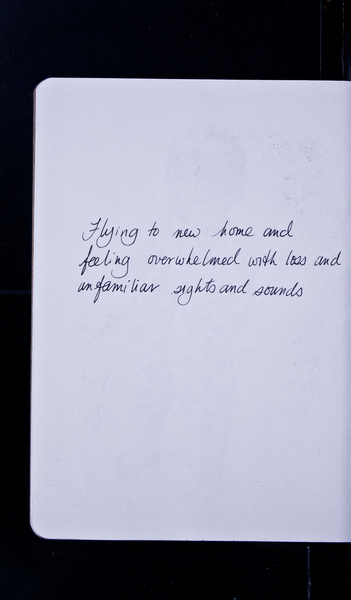 Flying to new home and
feeling overwhelmed with loss and
unfamiliar sights and sounds